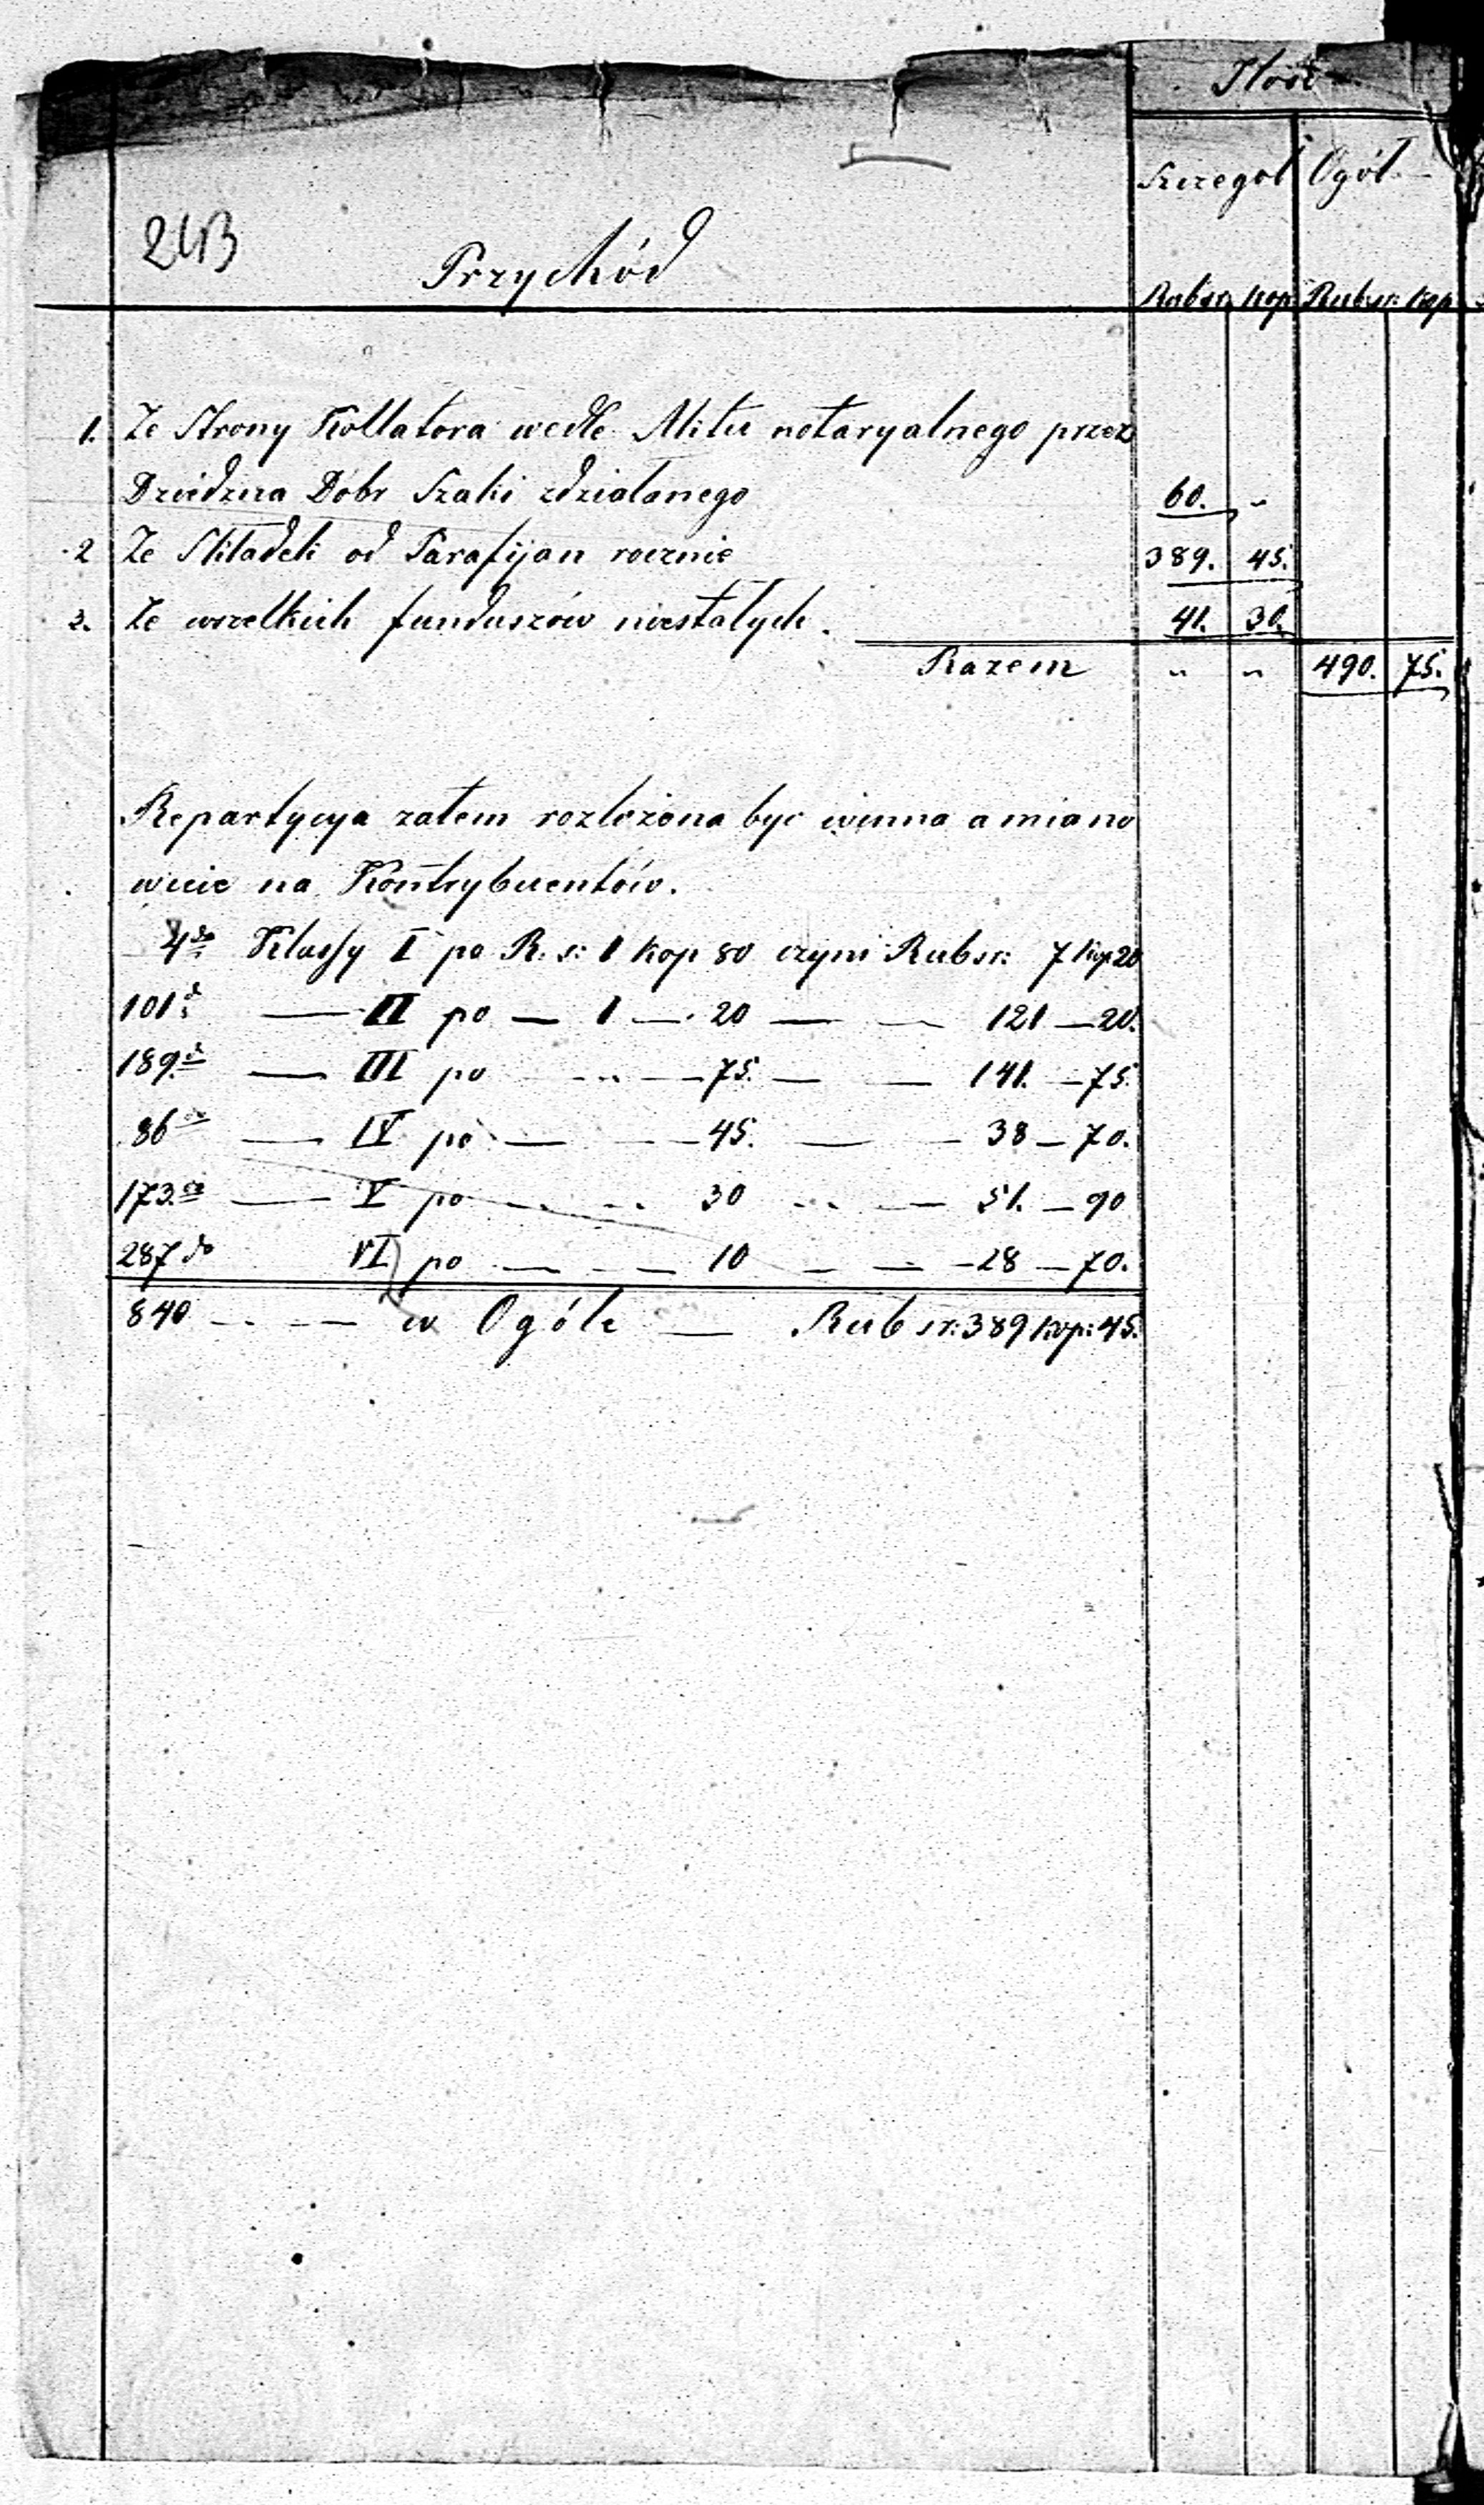 Ilość
Szczegół Ogół
243
Przychód
Rubsr: kop: Rubsr: kop
1. Ze Strony Kollatora wedle Aktu notaryalnego przez
Dziedzica Dóbr Szaki zdziałanego 60. „
2 Ze Składek od Parafijan rocznie 389. 45.
3. Ze wszelkich funduszów niestałych. 41. 30.
Razem „ „ 490. 75.
Repartycya zatem rozłożona być winna a miano
wicie na Kontrybuentów.
4do Klassy I po R. s: 1 kop 80 czyni Rubsr: 7 kop 20
101d — II po — 1 — 20 — — 121 — 20.
189d — III po — „ — 75. — — 141. — 75.
86do — IV po — — 45. — — 38 — 70.
173do — V po — „ 30 „ — 51. — 90
287do VI po — — — 10 — — — 28 — 70.
840 — — — w Ogóle — Rub sr: 389 kop: 45.